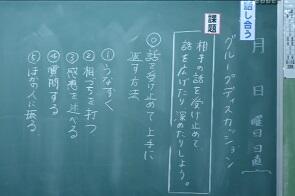 話し合う
月 日 曜日 日直
グループディスカッション
課題
相手の話を受け止めて、
話を広げたり深めたりしよう。
◎話を受け止めて上手に
返す方法
①うなずく
②相づちを打つ
③感想を述べる
④質問する
⑤ほかの人に振る